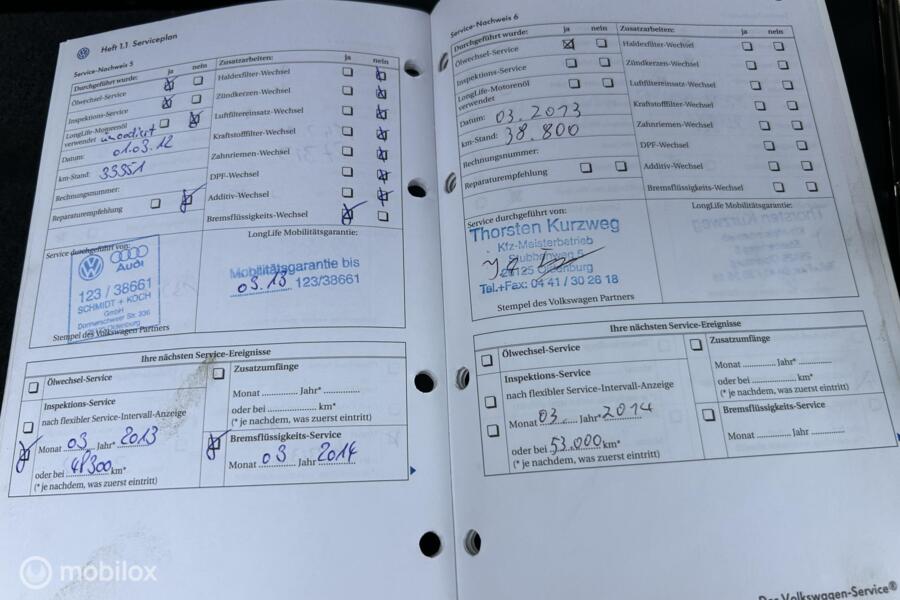 Heft 1.1 Serviceplan
Service-Nachweis 5
Durchgeführt wurde: ja nein
Ölwechsel-Service
Inspektions-Service
LongLife-Motorenöl
verwendet
Datum: 01.03.12
km-Stand: 33351
Rechnungsnummer:
Reparaturempfehlung
Zusatzarbeiten: ja nein
Haldexfilter-Wechsel
Zündkerzen-Wechsel
Luftfiltereinsatz-Wechsel
Kraftstofffilter-Wechsel
Zahnriemen-Wechsel
DPF-Wechsel
Additiv-Wechsel
Bremsflüssigkeits-Wechsel
Service durchgeführt von:
Audi
123 / 38661
SCHMIDT + KOCH
GmbH
Donnerschweer Str. 336
Oldenburg
Stempel des Volkswagen Partners
LongLife Mobilitätsgarantie:
Mobilitätsgarantie bis
03.13 123/38661
Ihre nächsten Service-Ereignisse
Ölwechsel-Service
Inspektions-Service
nach flexibler Service-Intervall-Anzeige
Monat 03 Jahr* 2013
oder bei 48300 km*
(* je nachdem, was zuerst eintritt)
Zusatzumfänge
Monat Jahr*
oder bei km*
(* je nachdem, was zuerst eintritt)
Bremsflüssigkeits-Service
Monat 03 Jahr 2014
Service-Nachweis 6
Durchgeführt wurde: ja nein
Ölwechsel-Service
Inspektions-Service
LongLife-Motorenöl
verwendet
Datum: 03.2013
km-Stand: 38.800
Rechnungsnummer:
Reparaturempfehlung
Zusatzarbeiten: ja nein
Haldexfilter-Wechsel
Zündkerzen-Wechsel
Luftfiltereinsatz-Wechsel
Kraftstofffilter-Wechsel
Zahnriemen-Wechsel
DPF-Wechsel
Additiv-Wechsel
Bremsflüssigkeits-Wechsel
Service durchgeführt von:
Thorsten Kurzweg
Kfz-Meisterbetrieb
Stubbenweg 5
26125 Oldenburg
Tel.+Fax: 04 41 / 30 26 18
Stempel des Volkswagen Partners
LongLife Mobilitätsgarantie:
Ihre nächsten Service-Ereignisse
Ölwechsel-Service
Inspektions-Service
nach flexibler Service-Intervall-Anzeige
Monat 03 Jahr* 2014
oder bei 53.000 km*
(* je nachdem, was zuerst eintritt)
Zusatzumfänge
Monat Jahr*
oder bei km*
(* je nachdem, was zuerst eintritt)
Bremsflüssigkeits-Service
Monat Jahr
Der Volkswagen-Service®
mobilox